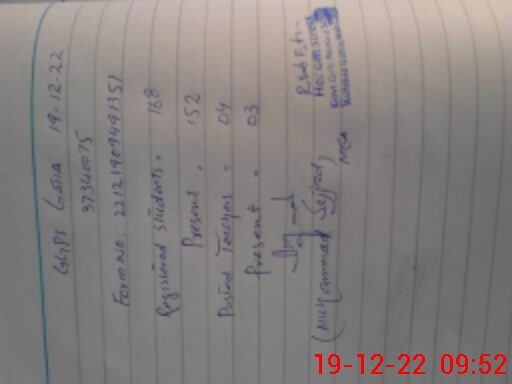 GGPS GATIA 19-12-22
37340075
Form No. 22121909491351
Registered students = 168
Present = 152
Posted Teachers = 04
Present = 03
(Muhammad Sajjad)
MEA
19-12-22 09:52